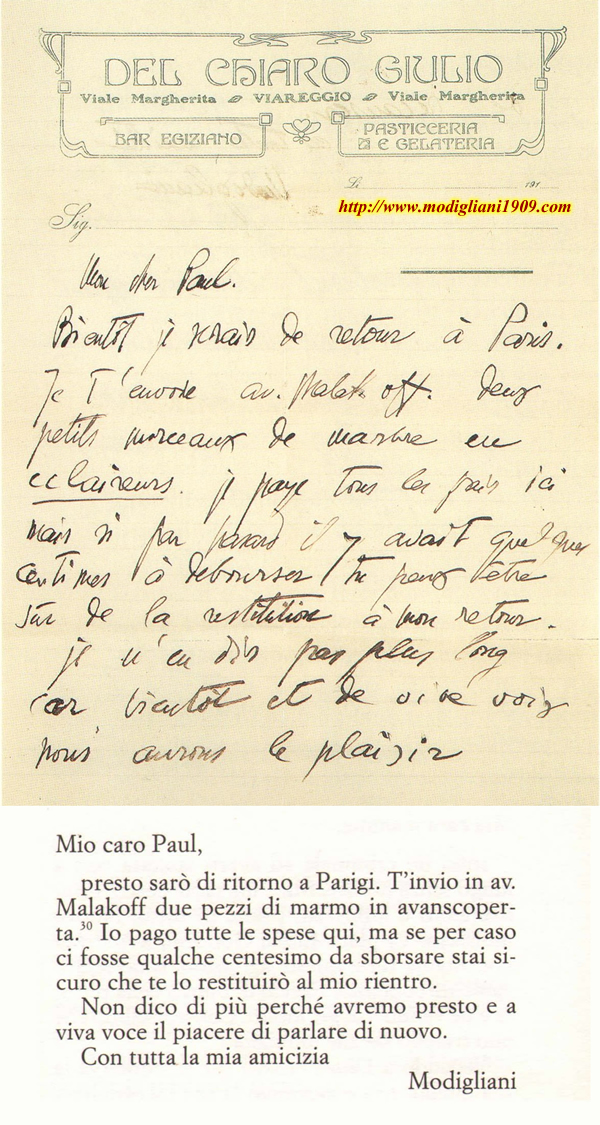 DEL CHIARO GIULIO
Viale Margherita VIAREGGIO Viale Margherita
BAR EGIZIANO
PASTICCERIA
E GELATERIA
Li 191
http://www.modigliani1909.com
Sig.
Mon cher Paul.
Bientôt je serais de retour à Paris.
Je t'envoie av. Malakoff. deux
petits morceaux de marbre en
eclaireurs. je paye tous les frais ici
mais si par hasard il y avait quelques
centimes à debourser tu peux être
sûr de la restitition à mon retour.
je n'en dis pas plus long
car bientôt et de vive voix
nous aurons le plaisir
Mio caro Paul,
presto sarò di ritorno a Parigi. T'invio in av.
Malakoff due pezzi di marmo in avanscoper-
ta.30 Io pago tutte le spese qui, ma se per caso
ci fosse qualche centesimo da sborsare stai si-
curo che te lo restituirò al mio rientro.
Non dico di più perché avremo presto e a
viva voce il piacere di parlare di nuovo.
Con tutta la mia amicizia
Modigliani